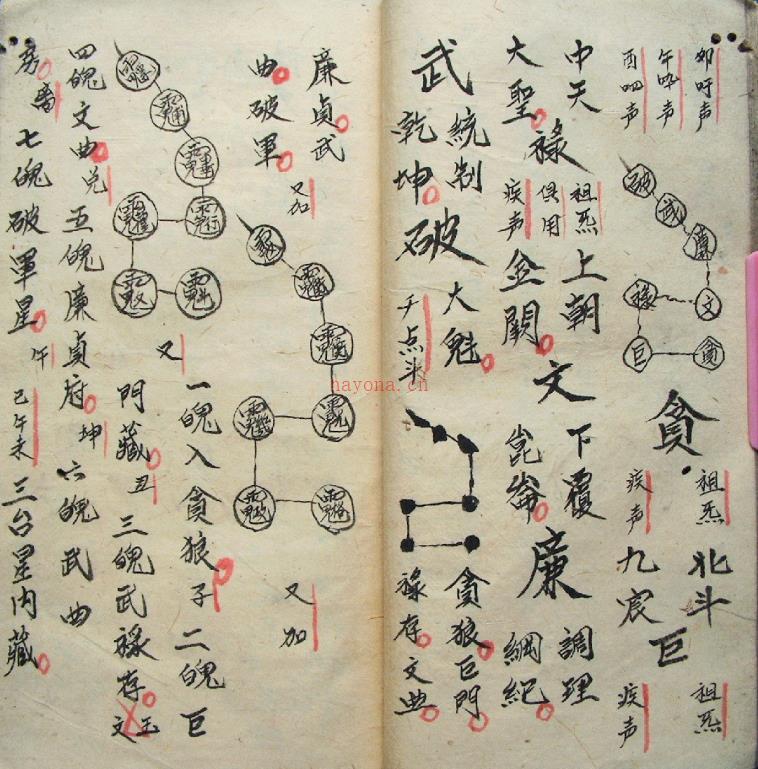 卯吁声
午吽声
酉呬声
破
武
廉
文
祿
巨
貪
貪
祖炁
疾声
北斗
九宸
巨
祖炁
疾声
中天
大聖
祿
祖炁
俱用
疾声
上朝
金闕
文
下覆
崑崙
廉
調理
綱紀
武
統制
乾坤
破
大魁
千点斗
貪狼巨門
祿存文曲
廉貞武
曲破軍
又加
又加
又
一魄入貪狼子
二魄巨
門藏
丑
三魄武祿存
玉
文
四魄文曲
兌
五魄廉貞府
坤
六魄武曲
房
七魄破軍星
午
巳午未
三台星内藏
hayona.cn